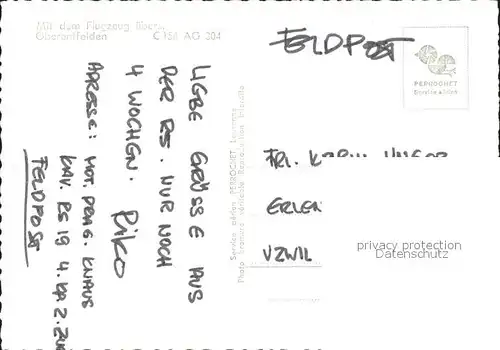 Mit dem Flugzeug über:
Oberentfelden C 158 AG 204
FELDPOST
PERROCHET
LIEBE GRÜSSE AUS
DER RS. NUR NOCH
4 WOCHEN.
Riko
ADRESSE: MOT. DRAG. KNAUS
KAV. RS 19 4. KP. 2. ZUG
FELDPOST
Service aérien PERROCHET Lausanne
Photo bromure véritable Reproduction interdite
FRL.
ERLEN
UZWIL
privacy protection
Datenschutz